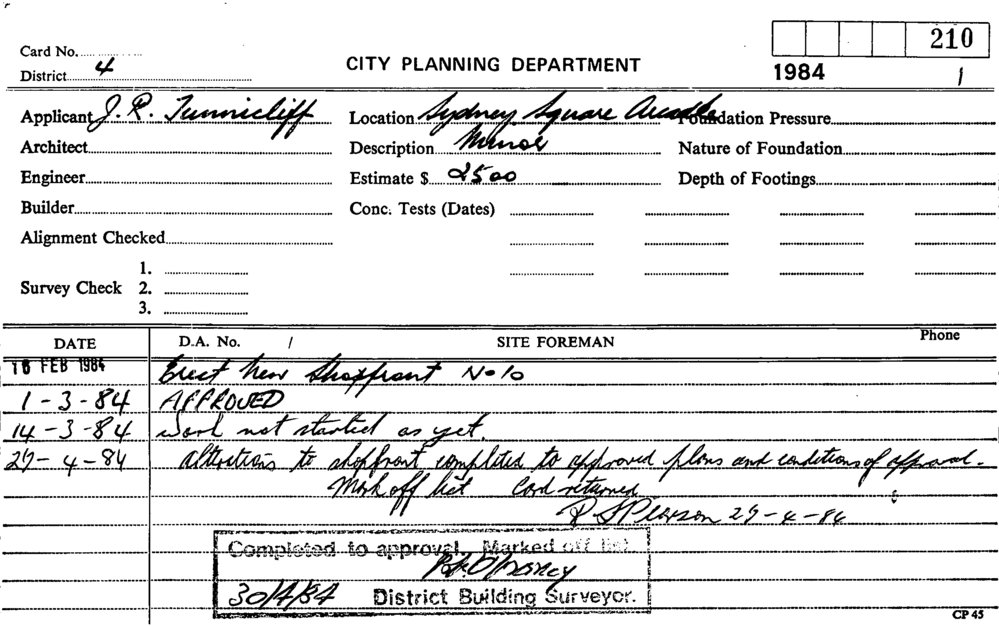 Card No. 210
District 4 CITY PLANNING DEPARTMENT 1984 1
Applicant J. R. Tunnicliff Location Sydney Square Arcade Foundation Pressure
Architect Description Minor Nature of Foundation
Engineer Estimate $ 2500 Depth of Footings
Builder Conc. Tests (Dates)
Alignment Checked
1.
Survey Check 2.
3.
DATE D.A. No. / SITE FOREMAN Phone
16 FEB 1984 Erect New Shopfront No 10
1-3-84 APPROVED
14-3-84 Work not started as yet.
27-4-84 alterations to shopfront completed to approved plans and conditions of approval.
Mark off list Card returned
Pearson 27-4-84
Completed to approval. Marked off list.
30/4/84 District Building Surveyor.
CP 45